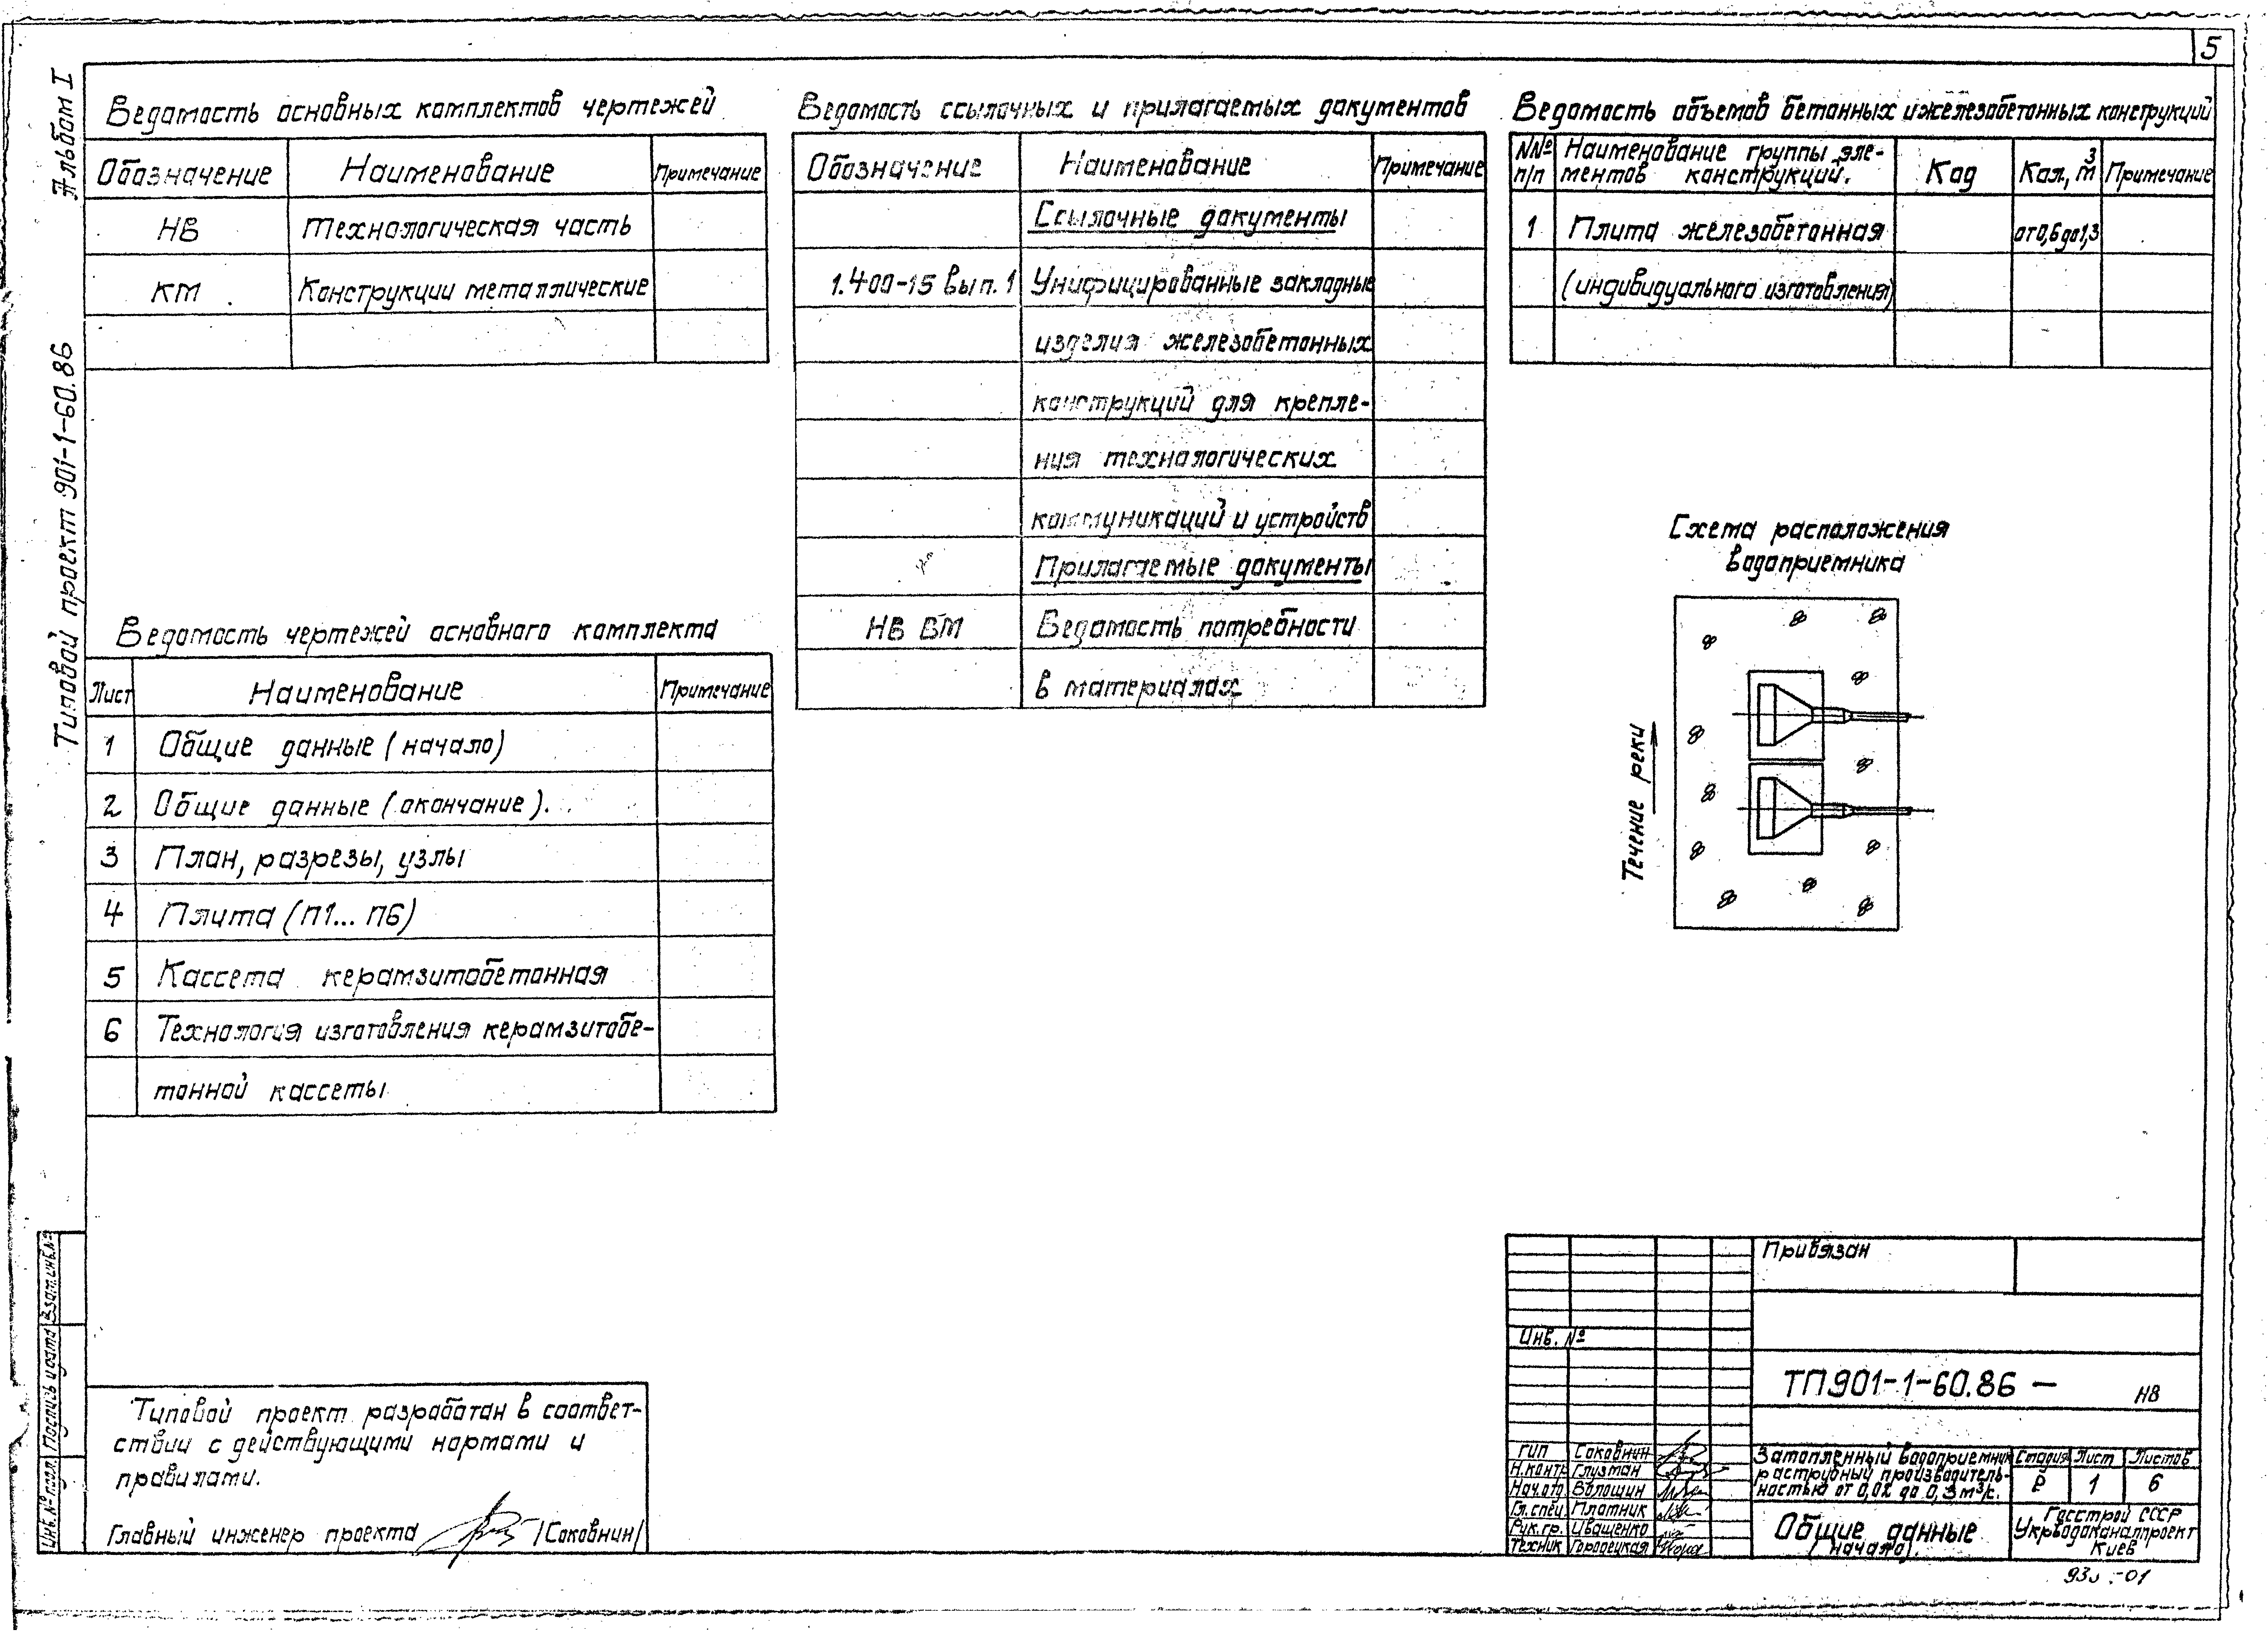 5
Альбом I
Типовой проект 901-1-60.86
Ведомость основных комплектов чертежей
Обозначение Наименование Примечание
НВ Технологическая часть
КМ Конструкции металлические
Ведомость чертежей основного комплекта
Лист Наименование Примечание
1 Общие данные (начало)
2 Общие данные (окончание).
3 План, разрезы, узлы
4 Плита (П1... П6)
5 Кассета керамзитобетонная
6 Технология изготовления керамзитобе-
тонной кассеты
Ведомость ссылочных и прилагаемых документов
Обозначение Наименование Примечание
Ссылочные документы
1.400-15 Вып. 1 Унифицированные закладные
изделия железобетонных
конструкций для крепле-
ния технологических
коммуникаций и устройств
Прилагаемые документы
НВ ВМ Ведомость потребности
в материалах
Ведомость объемов бетонных и железобетонных конструкций
№№ Наименование группы эле- Код Кол, м³ Примечание
п/п ментов конструкций.
1 Плита железобетонная от 0,6 до 1,3
(индивидуального изготовления)
Схема расположения
водоприемника
Течение реки
Типовой проект разработан в соответ-
ствии с действующими нормами и
правилами.
Главный инженер проекта /Соковнин/
Взам.инв.№
Подпись и дата
Инв.№ подл.
Привязан
Инв. №
ТП901-1-60.86 — НВ
ГИП Соковнин
Н.контр Глузман
Нач.отд Волошин
Гл.спец. Плотник
Рук.гр. Иващенко
Техник Городецкая
Затопленный водоприемник
раструбный производитель-
ностью от 0,02 до 0,3 м³/с.
Стадия Лист Листов
Р 1 6
Общие данные
(начало).
Госстрой СССР
Укрводоканалпроект
Киев